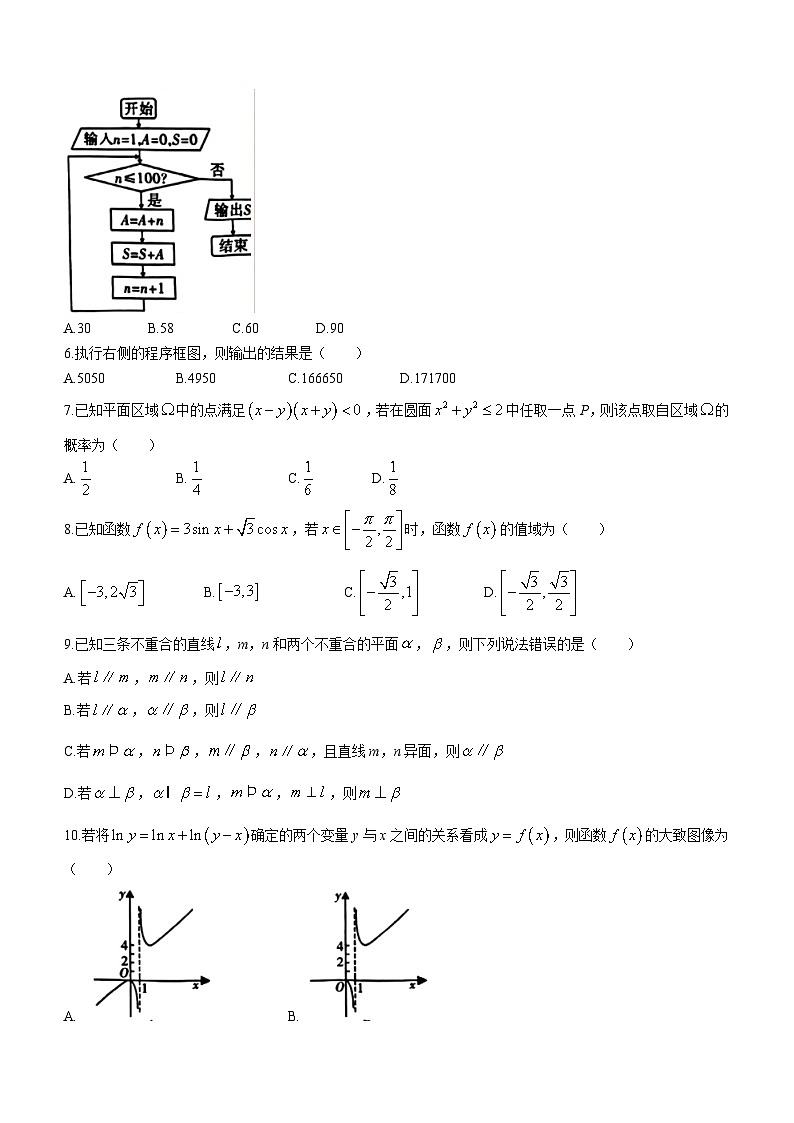 开始
输入n=1,A=0,S=0
n≤100?
否
是
A=A+n
输出S
S=S+A
结束
n=n+1
A.30 B.58 C.60 D.90
6.执行右侧的程序框图，则输出的结果是（　　）
A.5050 B.4950 C.166650 D.171700
7.已知平面区域Ω中的点满足(x−y)(x+y)<0，若在圆面x²+y²≤2中任取一点P，则该点取自区域Ω的
概率为（　　）
A. 1/2 B. 1/4 C. 1/6 D. 1/8
8.已知函数f(x)=3sin x+√3cos x，若x∈[−π/2,π/2]时，函数f(x)的值域为（　　）
A.[−3,2√3] B.[−3,3] C.[−√3/2,1] D.[−√3/2,√3/2]
9.已知三条不重合的直线l，m，n和两个不重合的平面α，β，则下列说法错误的是（　　）
A.若l∥m，m∥n，则l∥n
B.若l∥α，α∥β，则l∥β
C.若mÞα，nÞβ，m∥β，n∥α，且直线m，n异面，则α∥β
D.若α⊥β，αI β=l，mÞα，m⊥l，则m⊥β
10.若将ln y=ln x+ln(y−x)确定的两个变量y与x之间的关系看成y=f(x)，则函数f(x)的大致图像为
（　　）
y
4
2
O
1
x
A.
y
4
2
O
1
x
B.